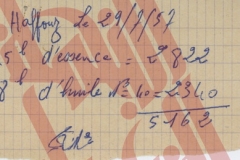 Haffouz le 29/7/57
5 l d'essence = 2822
8 l d'huile N° 40 = 2340
5162